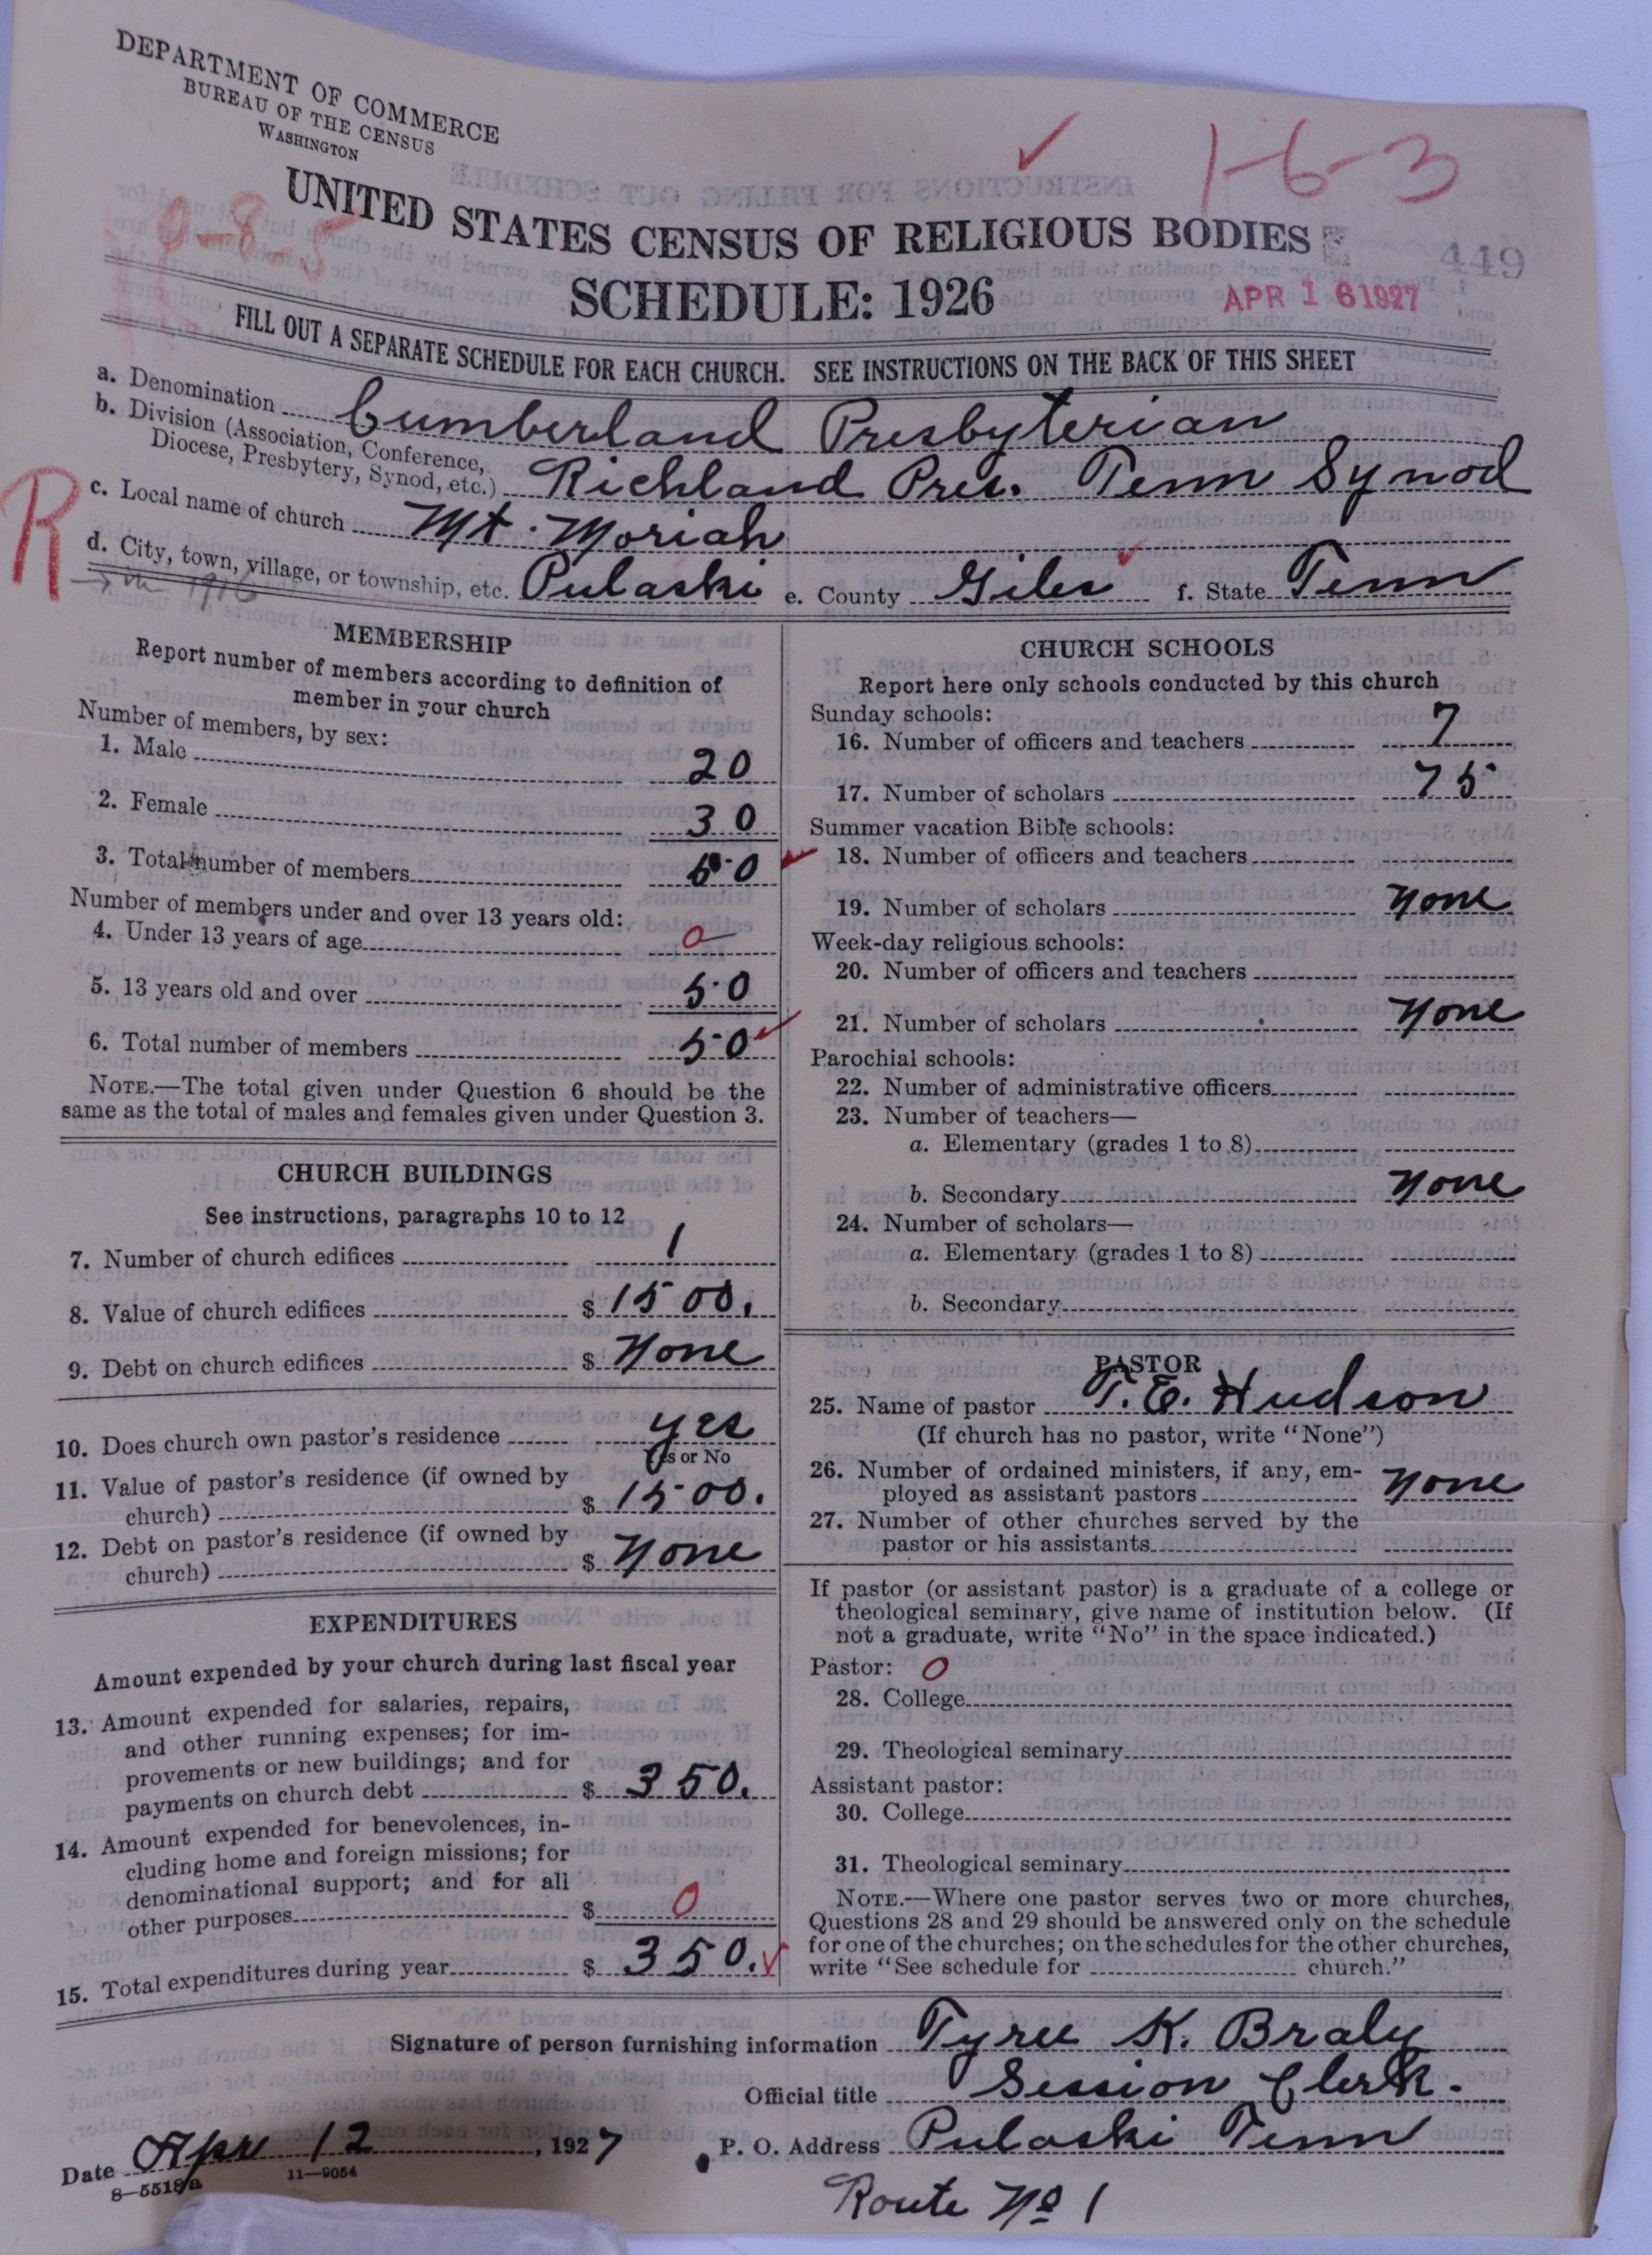 DEPARTMENT OF COMMERCE
BUREAU OF THE CENSUS
WASHINGTON
1-6-3
0-8-5
UNITED STATES CENSUS OF RELIGIOUS BODIES
449
SCHEDULE: 1926
APR 16 1927
FILL OUT A SEPARATE SCHEDULE FOR EACH CHURCH. SEE INSTRUCTIONS ON THE BACK OF THIS SHEET
a. Denomination Cumberland Presbyterian
b. Division (Association, Conference,
Diocese, Presbytery, Synod, etc.) Richland Pres. Tenn Synod
R
c. Local name of church Mt. Moriah
d. City, town, village, or township, etc. Pulaski e. County Giles f. State Tenn
in 1916
MEMBERSHIP
Report number of members according to definition of
member in your church
Number of members, by sex:
1. Male 20
2. Female 30
3. Total number of members 50
Number of members under and over 13 years old:
4. Under 13 years of age 0
5. 13 years old and over 50
6. Total number of members 50
NOTE.—The total given under Question 6 should be the
same as the total of males and females given under Question 3.
CHURCH BUILDINGS
See instructions, paragraphs 10 to 12
7. Number of church edifices 1
8. Value of church edifices $ 1500.
9. Debt on church edifices $ None
10. Does church own pastor's residence yes
Yes or No
11. Value of pastor's residence (if owned by
church) $ 1500.
12. Debt on pastor's residence (if owned by
church) $ None
EXPENDITURES
Amount expended by your church during last fiscal year
13. Amount expended for salaries, repairs,
and other running expenses; for im-
provements or new buildings; and for
payments on church debt $ 350.
14. Amount expended for benevolences, in-
cluding home and foreign missions; for
denominational support; and for all
other purposes $ 0
15. Total expenditures during year $ 350.
CHURCH SCHOOLS
Report here only schools conducted by this church
Sunday schools:
16. Number of officers and teachers 7
17. Number of scholars 75
Summer vacation Bible schools:
18. Number of officers and teachers
19. Number of scholars None
Week-day religious schools:
20. Number of officers and teachers
21. Number of scholars None
Parochial schools:
22. Number of administrative officers
23. Number of teachers—
a. Elementary (grades 1 to 8)
b. Secondary None
24. Number of scholars—
a. Elementary (grades 1 to 8)
b. Secondary
PASTOR
25. Name of pastor T. E. Hudson
(If church has no pastor, write "None")
26. Number of ordained ministers, if any, em-
ployed as assistant pastors None
27. Number of other churches served by the
pastor or his assistants
If pastor (or assistant pastor) is a graduate of a college or
theological seminary, give name of institution below. (If
not a graduate, write "No" in the space indicated.)
Pastor: 0
28. College
29. Theological seminary
Assistant pastor:
30. College
31. Theological seminary
NOTE.—Where one pastor serves two or more churches,
Questions 28 and 29 should be answered only on the schedule
for one of the churches; on the schedules for the other churches,
write "See schedule for church."
Signature of person furnishing information Tyree K. Braly
Official title Session Clerk.
Date Apr 12, 1927 P. O. Address Pulaski Tenn
8—5518a 11—9054
Route No 1